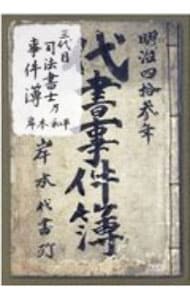 明治四拾参年
代書事件簿
岸本代書
三代目
司法書士乃
事件簿
岸本和平